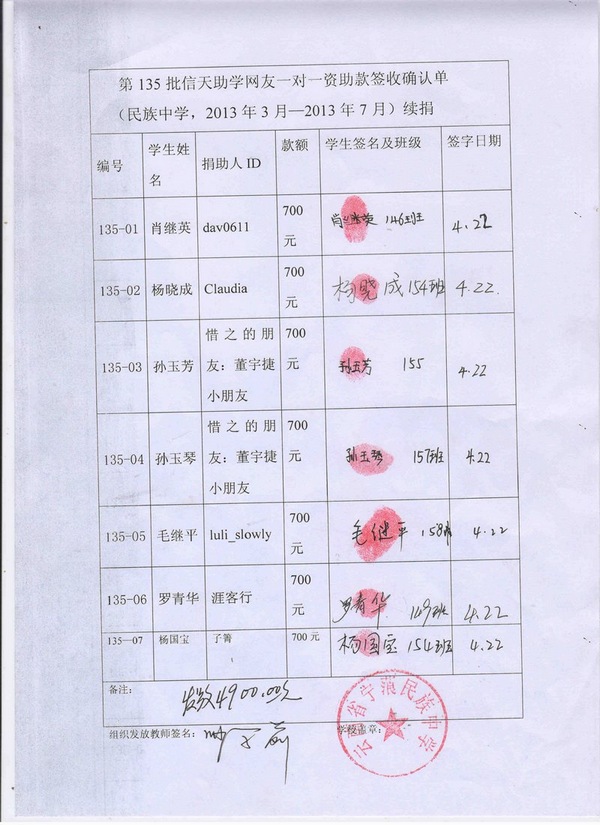 第 135 批信天助学网友一对一资助款签收确认单
（民族中学，2013 年 3 月—2013 年 7 月）续捐
编号 学生姓名 捐助人 ID 款额 学生签名及班级 签字日期
135-01 肖继英 dav0611 700元 肖继英 146班 4.22
135-02 杨晓成 Claudia 700元 杨晓成 154班 4.22.
135-03 孙玉芳 惜之的朋友：董宇捷小朋友 700元 孙玉芳 155 4.22
135-04 孙玉琴 惜之的朋友：董宇捷小朋友 700元 孙玉琴 157班 4.22
135-05 毛继平 luli_slowly 700元 毛继平 158班 4.22
135-06 罗青华 涯客行 700元 罗青华 149班 4.22
135—07 杨国宝 子箐 700 元 杨国宝 154班 4.22
备注： 发放4900.00元
组织发放教师签名： 学校盖章：
云南省宁蒗民族中学